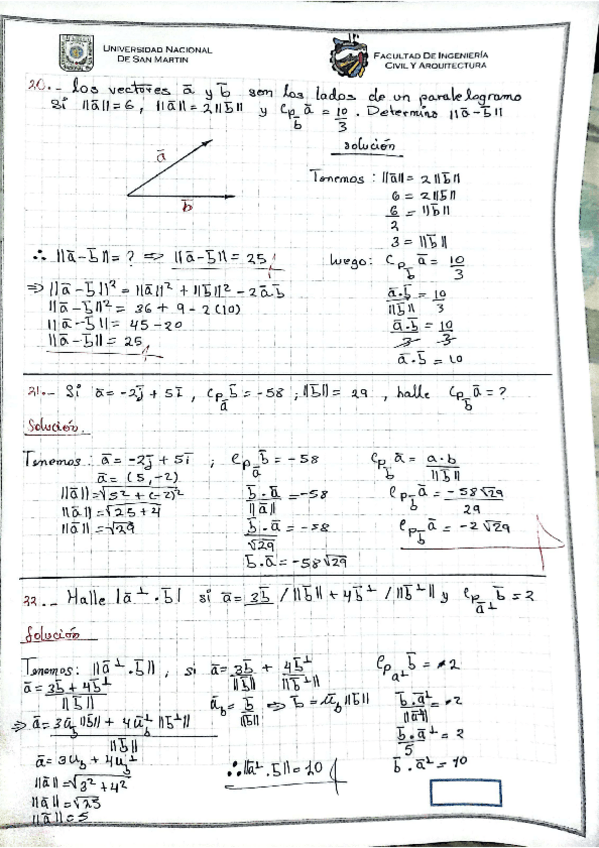 UNIVERSIDAD NACIONAL
DE SAN MARTIN
FACULTAD DE INGENIERÍA
CIVIL Y ARQUITECTURA
20.- Los vectores a̅ y b̅ son los lados de un paralelogramo
Si ||a̅||=6, ||a̅||=2||b̅|| y Cp_b̅ a̅ = 10/3. Determine ||a̅-b̅||
solución
a̅
b̅
Tenemos: ||a̅|| = 2||b̅||
6 = 2||b̅||
6/2 = ||b̅||
3 = ||b̅||
luego: Cp_b̅ a̅ = 10/3
a̅.b̅/||b̅|| = 10/3
a̅.b̅/3 = 10/3
a̅.b̅ = 10
∴ ||a̅-b̅|| = ? ⇒ ||a̅-b̅|| = 25
⇒ ||a̅-b̅||² = ||a̅||² + ||b̅||² - 2a̅b̅
||a̅-b̅||² = 36 + 9 - 2(10)
||a̅-b̅|| = 45-20
||a̅-b̅|| = 25
31.- Si a̅ = -2j̅ + 5i̅, Cp_a̅ b̅ = -58; ||b̅|| = 29, halle Cp_b̅ a̅ = ?
Solución.
Tenemos: a̅ = -2j̅ + 5i̅;
a̅ = (5,-2)
||a̅|| = √5²+(-2)²
||a̅|| = √25+4
||a̅|| = √29
Cp_a̅ b̅ = -58
b̅.a̅/||a̅|| = -58
b̅.a̅/√29 = -58
b̅.a̅ = -58√29
Cp_b̅ a̅ = a.b/||b̅||
Cp_b̅ a̅ = -58√29/29
Cp_b̅ a̅ = -2√29
32.- Halle |a̅⊥.b̅| si a̅ = 3b̅/||b̅|| + 4b̅⊥/||b̅⊥|| y Cp_a̅⊥ b̅ = 2
Solución
Tenemos: ||a̅⊥.b̅||, si a̅ = 3b̅/||b̅|| + 4b̅⊥/||b̅⊥||
a̅ = 3b̅ + 4b̅⊥/||b̅||
u̅_b = b̅/||b̅|| ⇒ b̅ = u̅_b ||b̅||
⇒ a̅ = 3u̅_b ||b̅|| + 4u̅_b⊥ ||b̅⊥||/||b̅||
a̅ = 3u_b + 4u_b⊥
||a̅|| = √3²+4²
||a̅|| = √25
||a̅|| = 5
Cp_a⊥ b̅ = 2
b̅.a̅⊥/||a̅⊥|| = 2
b̅.a̅⊥/5 = 2
b̅.a̅⊥ = 10
∴ ||a̅⊥.b̅|| = 10